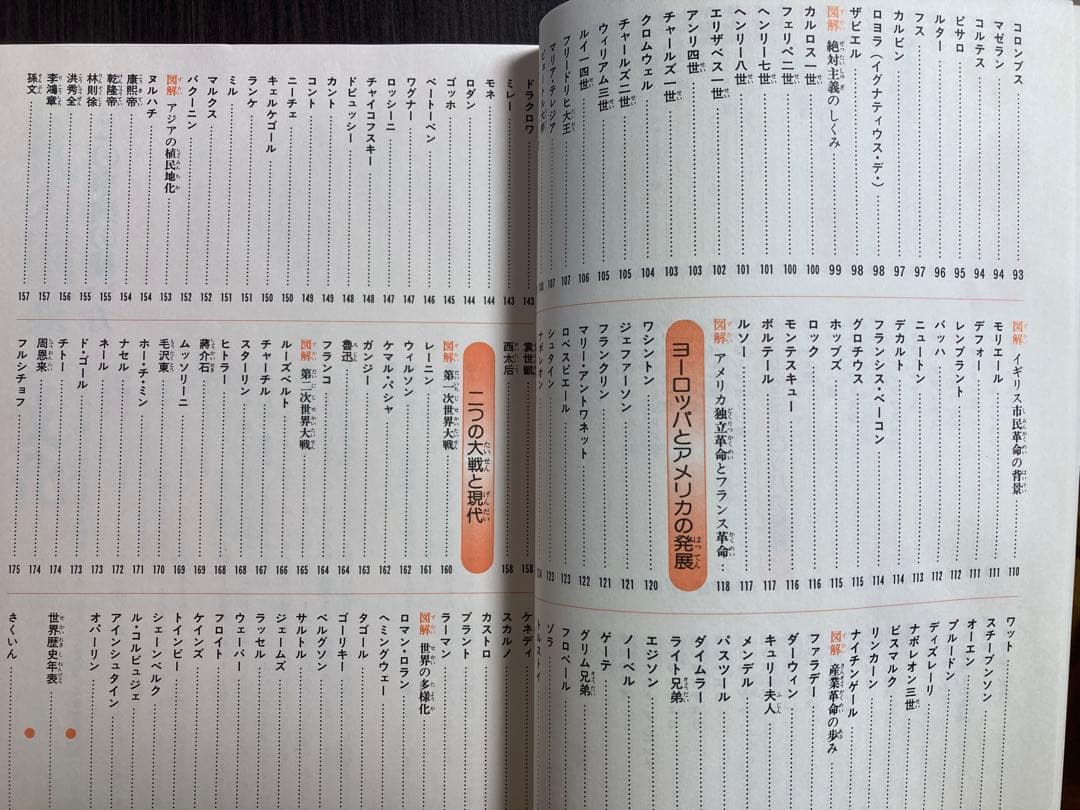 コロンブス 93
マゼラン 94
コルテス 94
ピサロ 95
ルター 96
フス 97
カルビン 97
ロヨラ（イグナティウス・デ・） 98
ザビエル 98
図解 絶対主義のしくみ 99
カルロス一世 100
フェリペ二世 100
ヘンリー七世 101
ヘンリー八世 101
エリザベス一世 102
アンリ四世 103
チャールズ一世 103
クロムウェル 104
チャールズ二世 105
ウィリアム三世 105
ルイ一四世 106
フリードリヒ大王 107
マリア・テレジア 107
図解 イギリス市民革命の背景 110
モリエール 111
レンブラント 111
バッハ 112
ニュートン 112
デカルト 113
フランシス・ベーコン 114
グロチウス 114
ホッブズ 115
ロック 115
モンテスキュー 116
ボルテール 117
ルソー 117
図解 アメリカ独立革命とフランス革命 118
ヨーロッパとアメリカの発展
ワシントン 120
ジェファーソン 121
フランクリン 121
マリー・アントワネット 122
ロベスピエール 123
シュタイン 123
ナポレオン 124
ワット
スチーブンソン
オーエン
プルードン
ディズレーリ
ナポレオン三世
ビスマルク
リンカーン
ナイチンゲール
図解 産業革命の歩み
ファラデー
ダーウィン
キュリー夫人
メンデル
パスツール
ダイムラー
ライト兄弟
エジソン
ノーベル
ゲーテ
グリム兄弟
フロベール
ゾラ
トルストイ
ドラクロワ 143
ミレー 143
モネ 144
ロダン 144
ゴッホ 145
ベートーベン 146
ワグナー 147
ロッシーニ 147
チャイコフスキー 148
ドビュッシー 148
カント 149
コント 149
ニーチェ 150
キェルケゴール 150
ランケ 151
ミル 151
マルクス 152
バクーニン 152
図解 アジアの植民地化 153
ヌルハチ 154
康熙帝 154
乾隆帝 155
林則徐 155
洪秀全 156
李鴻章 157
孫文 157
袁世凱 158
西太后 158
二つの大戦と現代
図解 第一次世界大戦 160
レーニン 161
ウィルソン 162
ケマル・パシャ 162
ガンジー 163
魯迅 164
フランコ 164
図解 第二次世界大戦 166
ルーズベルト 167
チャーチル 168
スターリン 168
ヒトラー 169
蔣介石 169
ムッソリーニ 170
毛沢東 170
ホー・チ・ミン 171
ナセル 172
ネール 172
ド・ゴール 173
チトー 174
周恩来 174
フルシチョフ 175
ケネディ
スカルノ
カストロ
ブラント
ラーマン
図解 世界の多様化
ロマン・ロラン
ヘミングウェー
タゴール
ゴーリキー
ベルグソン
サルトル
ジェームズ
ラッセル
ウェーバー
フロイト
ケインズ
トインビー
シェーンベルク
ル・コルビュジェ
アインシュタイン
オパーリン
世界歴史年表
さくいん